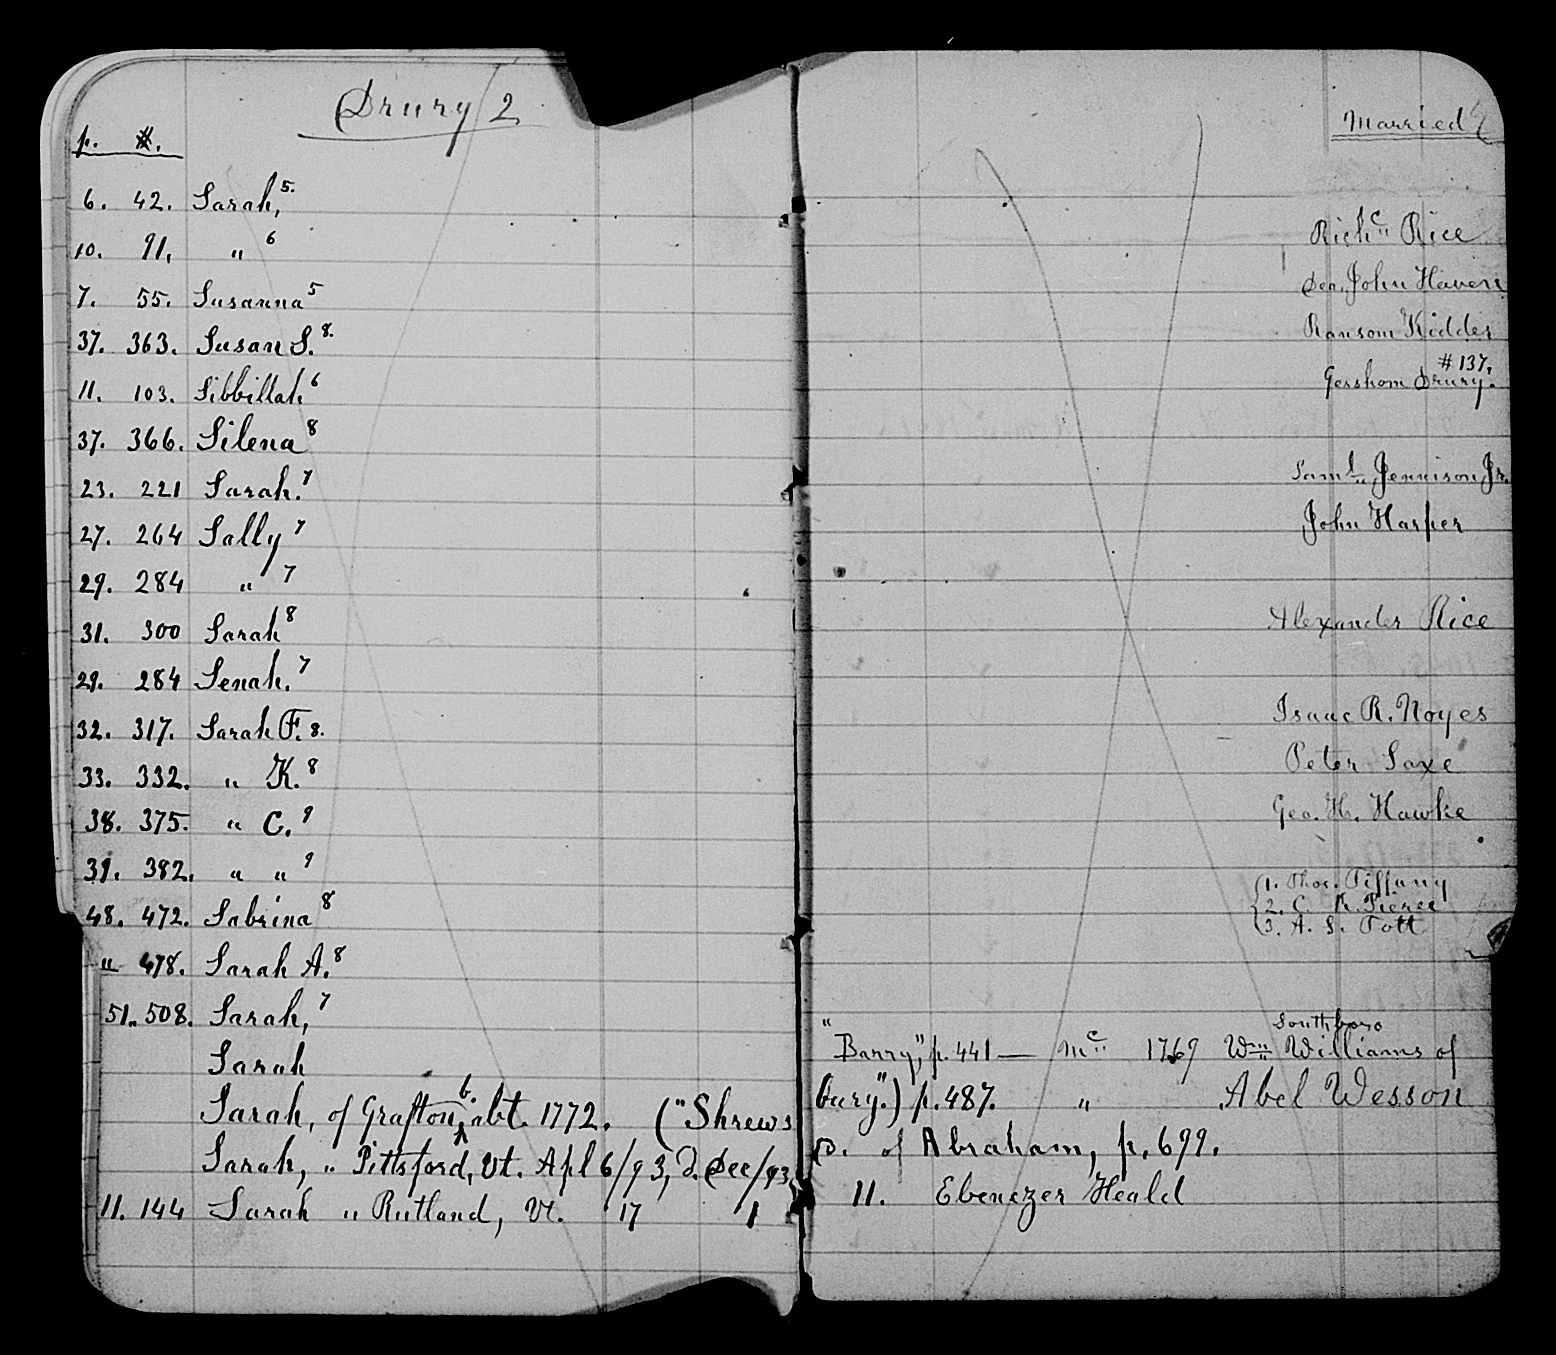 Drury 2
p. #. Married
6. 42. Sarah,⁵·
10. 91. " ⁶ Richᶜ" Rice
7. 55. Susanna⁵ Dea. John Haven
37. 363. Susan S.⁸· Ransom Kidder
11. 103. Sibbillah⁶ Gershom Drury. #137.
37. 366. Silena⁸
23. 221 Sarah.⁷ Samˡ" Jennison Jr.
27. 264 Sally⁷ John Harper
29. 284 " ⁷
31. 300 Sarah⁸ Alexander Rice
29. 284 Senah.⁷
32. 317. Sarah F. 8. Isaac R. Noyes
33. 332. " K.⁸ Peter Saxe
38. 375. " C.⁹ Geo. H. Hawke
39. 392. " " ⁹
1. Thos. Tiffany
48. 472. Sabrina⁸ 2. C. R. Pierce
3. A. S. Tott
" 478. Sarah A.⁸
51. 508. Sarah,⁷
Southboro
Sarah "Barry," p. 441 — Mᶜ" 1769 Wm Williams of
Sarah, of Grafton, b. abt. 1772. ("Shrewsbury.") p. 487. " Abel Wesson
Sarah, " Pittsford, Vt. Apl 6/93, d. Dec/93, D. of Abraham, p. 699.
11. 144 Sarah " Rutland, Vt. 17 1 11. Ebenezer Heald